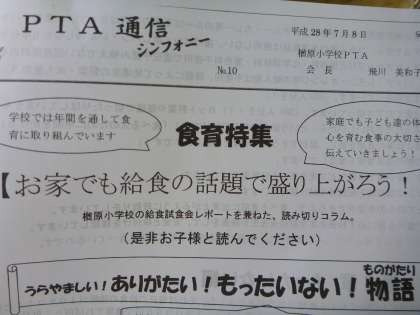 PTA 通信
シンフォニー
平成28年7月8日
№10
楢原小学校PTA
会 長 飛川 美和子
学校では年間を通して食
育に取り組んでいます
食育特集
家庭でも子ども達の体
心を育む食事の大切さ
伝えていきましょう！
【お家でも給食の話題で盛り上がろう！
楢原小学校の給食試食会レポートを兼ねた、読み切りコラム。
（是非お子様と読んでください）
うらやましい！ありがたい！もったいない！物語
ものがたり